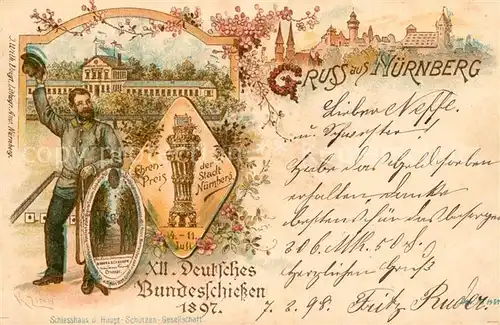 J. Ulr. Vogt, Lithogr. Anst. Nürnberg.
GRUSS aus NÜRNBERG
Lieber Neffe
u. Schwester!
Habe das Geld soeben
erhalten, danke
bestens für das besorgen
306. Mk. 50 ₰.
Herzlichen Gruß
Fritz Ruder
7. 2. 98.
Ehren-Preis
der Stadt Nürnberg
Juli
XII. Deutsches
Bundesschießen
1897.
Schiesshaus d. Haupt-Schützen-Gesellschaft